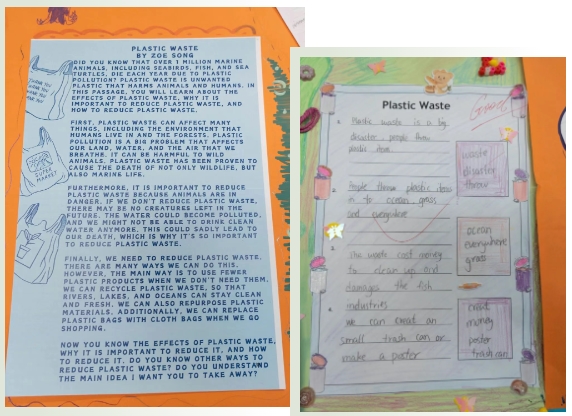 PLASTIC WASTE
BY ZOE SONG
DID YOU KNOW THAT OVER 1 MILLION MARINE
ANIMALS, INCLUDING SEABIRDS, FISH, AND SEA
TURTLES, DIE EACH YEAR DUE TO PLASTIC
POLLUTION? PLASTIC WASTE IS UNWANTED
PLASTIC THAT HARMS ANIMALS AND HUMANS. IN
THIS PASSAGE, YOU WILL LEARN ABOUT THE
EFFECTS OF PLASTIC WASTE, WHY IT IS
IMPORTANT TO REDUCE PLASTIC WASTE, AND
HOW TO REDUCE PLASTIC WASTE.
FIRST, PLASTIC WASTE CAN AFFECT MANY
THINGS, INCLUDING THE ENVIRONMENT THAT
HUMANS LIVE IN AND THE FORESTS. PLASTIC
POLLUTION IS A BIG PROBLEM THAT AFFECTS
OUR LAND, WATER, AND THE AIR THAT WE
BREATHE. IT CAN BE HARMFUL TO WILD
ANIMALS. PLASTIC WASTE HAS BEEN PROVEN TO
CAUSE THE DEATH OF NOT ONLY WILDLIFE, BUT
ALSO MARINE LIFE.
FURTHERMORE, IT IS IMPORTANT TO REDUCE
PLASTIC WASTE BECAUSE ANIMALS ARE IN
DANGER. IF WE DON'T REDUCE PLASTIC WASTE,
THERE MAY BE NO CREATURES LEFT IN THE
FUTURE. THE WATER COULD BECOME POLLUTED,
AND WE MIGHT NOT BE ABLE TO DRINK CLEAN
WATER ANYMORE. THIS COULD SADLY LEAD TO
OUR DEATH, WHICH IS WHY IT'S SO IMPORTANT
TO REDUCE PLASTIC WASTE.
FINALLY, WE NEED TO REDUCE PLASTIC WASTE.
THERE ARE MANY WAYS WE CAN DO THIS.
HOWEVER, THE MAIN WAY IS TO USE FEWER
PLASTIC PRODUCTS WHEN WE DON'T NEED THEM.
WE CAN RECYCLE PLASTIC WASTE, SO THAT
RIVERS, LAKES, AND OCEANS CAN STAY CLEAN
AND FRESH. WE CAN ALSO REPURPOSE PLASTIC
MATERIALS. ADDITIONALLY, WE CAN REPLACE
PLASTIC BAGS WITH CLOTH BAGS WHEN WE GO
SHOPPING.
NOW YOU KNOW THE EFFECTS OF PLASTIC WASTE,
WHY IT IS IMPORTANT TO REDUCE IT, AND HOW
TO REDUCE IT. DO YOU KNOW OTHER WAYS TO
REDUCE PLASTIC WASTE? DO YOU UNDERSTAND
THE MAIN IDEA I WANT YOU TO TAKE AWAY?
THANK YOU
THANK YOU
THANK YOU
SUPER
MARKET
Plastic Waste
Good
1. Plastic waste is a big
disaster people throw
plastic item
waste
disaster
throw
2. People throw plastic items
in to ocean grass
and everywhere
ocean
everywhere
grass
3. The waste cost money
to clean up and
damages the fish
industries
4. we can creat an
small trash can or
make a poster
creat
money
poster
trash can